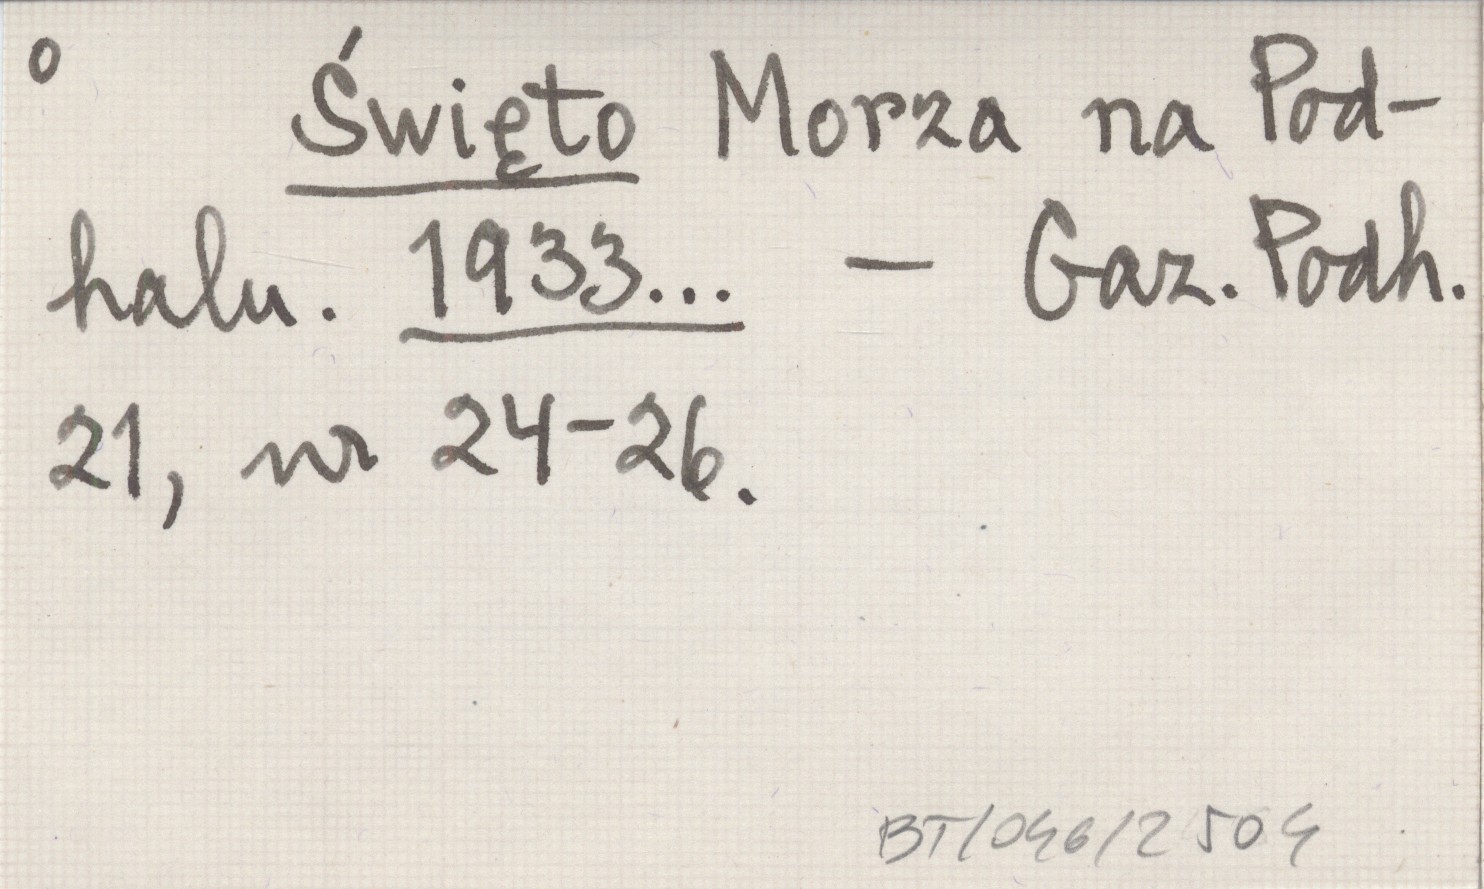 o Święto Morza na Pod-
halu. 1933... – Gaz. Podh.
21, nr 24-26.
BT/046/2504